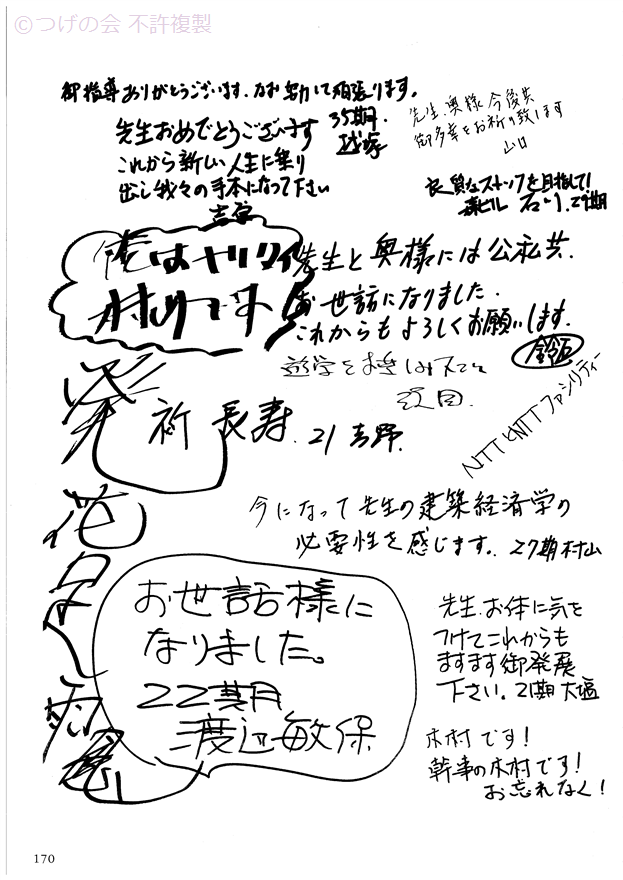 © つげの会 不許複製
御指導ありがとうございます。
頑張ります。
35期
先生おめでとうございます
これから新しい人生に乗り
出し我々の手本になって下さい
先生、奥様 今後共
御多幸をお祈り致します
山口
良質なストックを目指して!
森ビル 石川.29期
俺はヤリタイ
村山です
先生と奥様には公私共.
お世話になりました.
これからもよろしくお願いします.
鈴石
祈 長寿. 21 吉野.
NTTとNTTファシリティー
今になって先生の建築経済学の
必要性を感じます。27期村山
お世話様に
なりました。
22期
渡辺敏保
先生.お体に気を
つけてこれからも
ますます御発展
下さい。21期 大塩
木村です!
幹事の木村です!
お忘れなく!
170